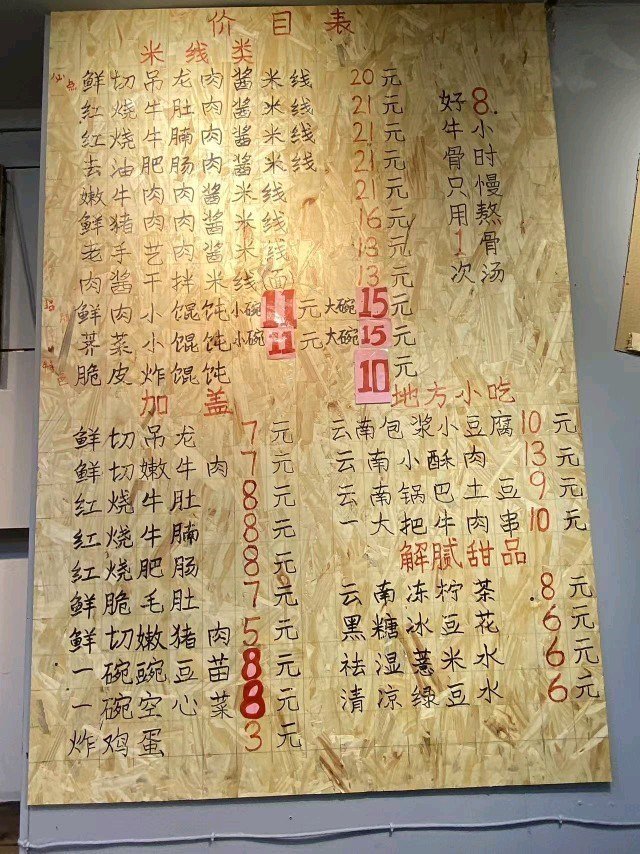 价目表
米线类
鲜切吊龙肉酱米线 20元
红烧牛肚肉酱米线 21元
红烧牛腩肉酱米线 21元
去油肥肠肉酱米线 21元
嫩牛肉肉酱米线 21元
鲜猪肉肉酱米线 16元
老手艺肉酱米线 13元
肉酱干拌米线面 13元
鲜肉小馄饨 小碗11元 大碗15元
荠菜小馄饨 小碗11元 大碗15元
脆皮炸馄饨 10元
好牛骨只用1次
8小时慢熬骨汤
加盖
鲜切吊龙 7元
鲜切嫩牛肉 7元
红烧牛肚 8元
红烧牛腩 8元
红烧肥肠 8元
鲜脆毛肚 7元
鲜切嫩猪肉 5元
一碗豌豆苗 8元
一碗空心菜 8元
炸鸡蛋 3元
地方小吃
云南包浆小豆腐 10元
云南小酥肉 13元
云南锅巴土豆 9元
一大把牛肉串 10元
解腻甜品
云南冻柠茶 8元
黑糖冰豆花 6元
祛湿薏米水 6元
清凉绿豆水 6元